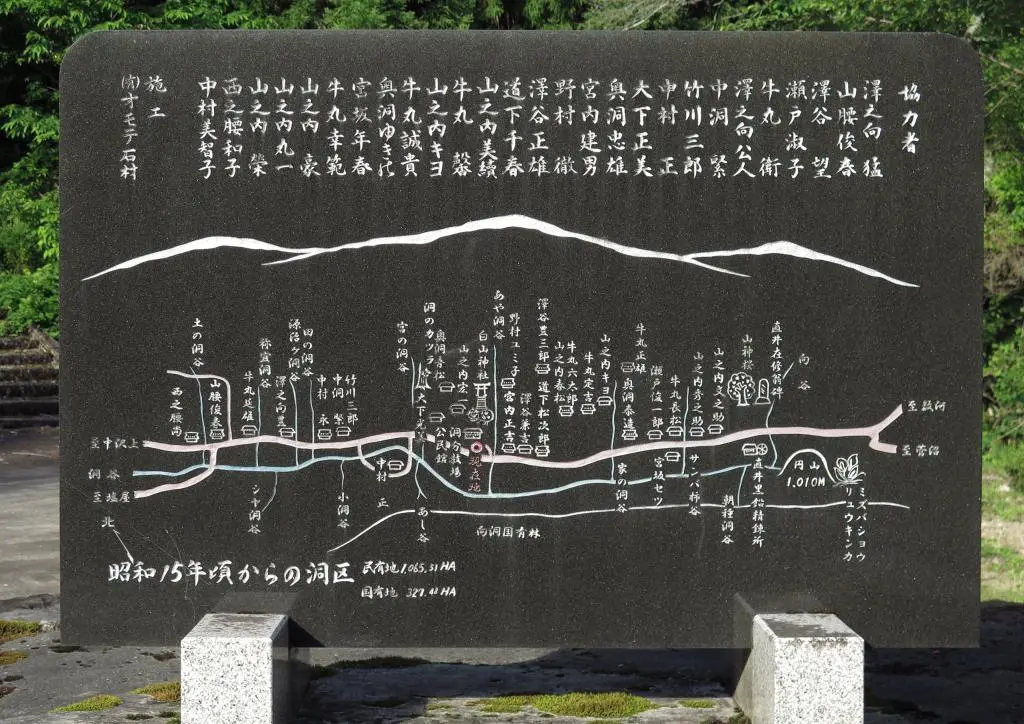 協力者
澤之向 猛
山腰俊春
澤谷 望
瀬戸淑子
牛丸 衛
澤之向公人
中洞 繁
竹川三郎
中村 正
大下正美
奥洞忠雄
宮内建男
野村 徹
澤谷正雄
道下千春
山之内美績
牛丸
山之内キヨ
牛丸誠貴
奥洞ゆき代
宮坂年春
牛丸幸範
山之内 豪
山之内丸一
山之内 榮
西之腰和子
中村美智子
施工
㈲オモテ石材
土の洞谷
西之腰尚
山腰俊春
祢宜洞谷
牛丸延雄
源治ヶ洞谷
澤之向豊
田の洞谷
中村 永
中洞 繁
竹川三郎
宮の洞
洞のカツラ
大下光
奥洞春松
公民館
山之内宏一
洞分教場
白山神社
現在地
あや洞谷
野村ユミ子
宮内正吉
澤谷兼吉
澤谷豊三郎
道下松次郎
山之内春松
牛丸六大郎
牛丸定吉
山之内キヨ
牛丸正雄
奥洞泰造
瀬戸佐一郎
牛丸長松
山之内秀之助
山之内文之助
山神松
直井佐修翁碑
向谷
至数河
至中沢上
至菅沼
洞谷
至塩屋
北
シヤ洞谷
小洞谷
中村 正
あし谷
向洞国有林
家の洞谷
宮坂セツ
サンバ柿谷
朝種洞谷
直井黒鉛精錬所
円山
1.010M
ミズバショウ
リュウキンカ
昭和15年頃からの洞区
民有地1,065.51HA
国有地 327.48HA